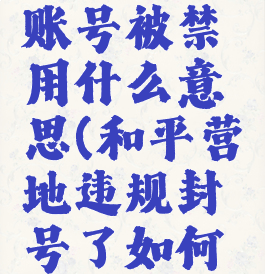 账号被禁
用什么意
思(和平营
地违规封
号了如何